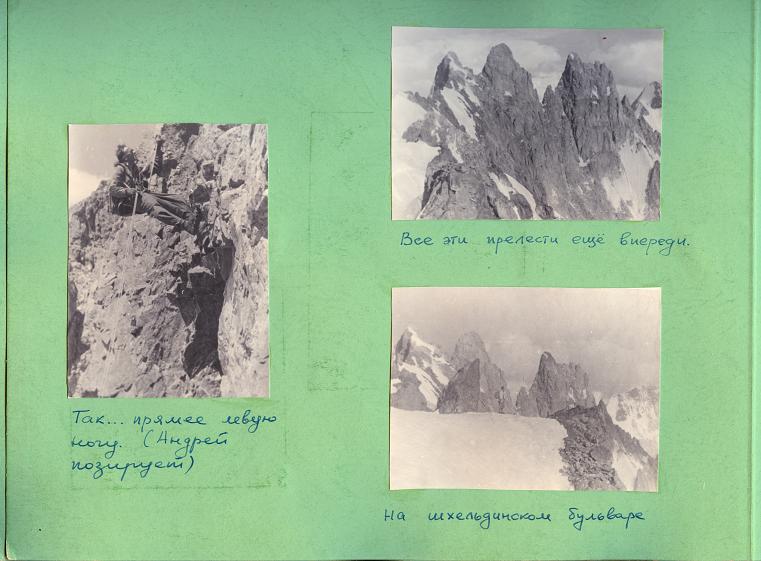 Так... прямее левую
ногу. (Андрей
позирует)
Все эти прелести ещё впереди.
На шхельдинском бульваре